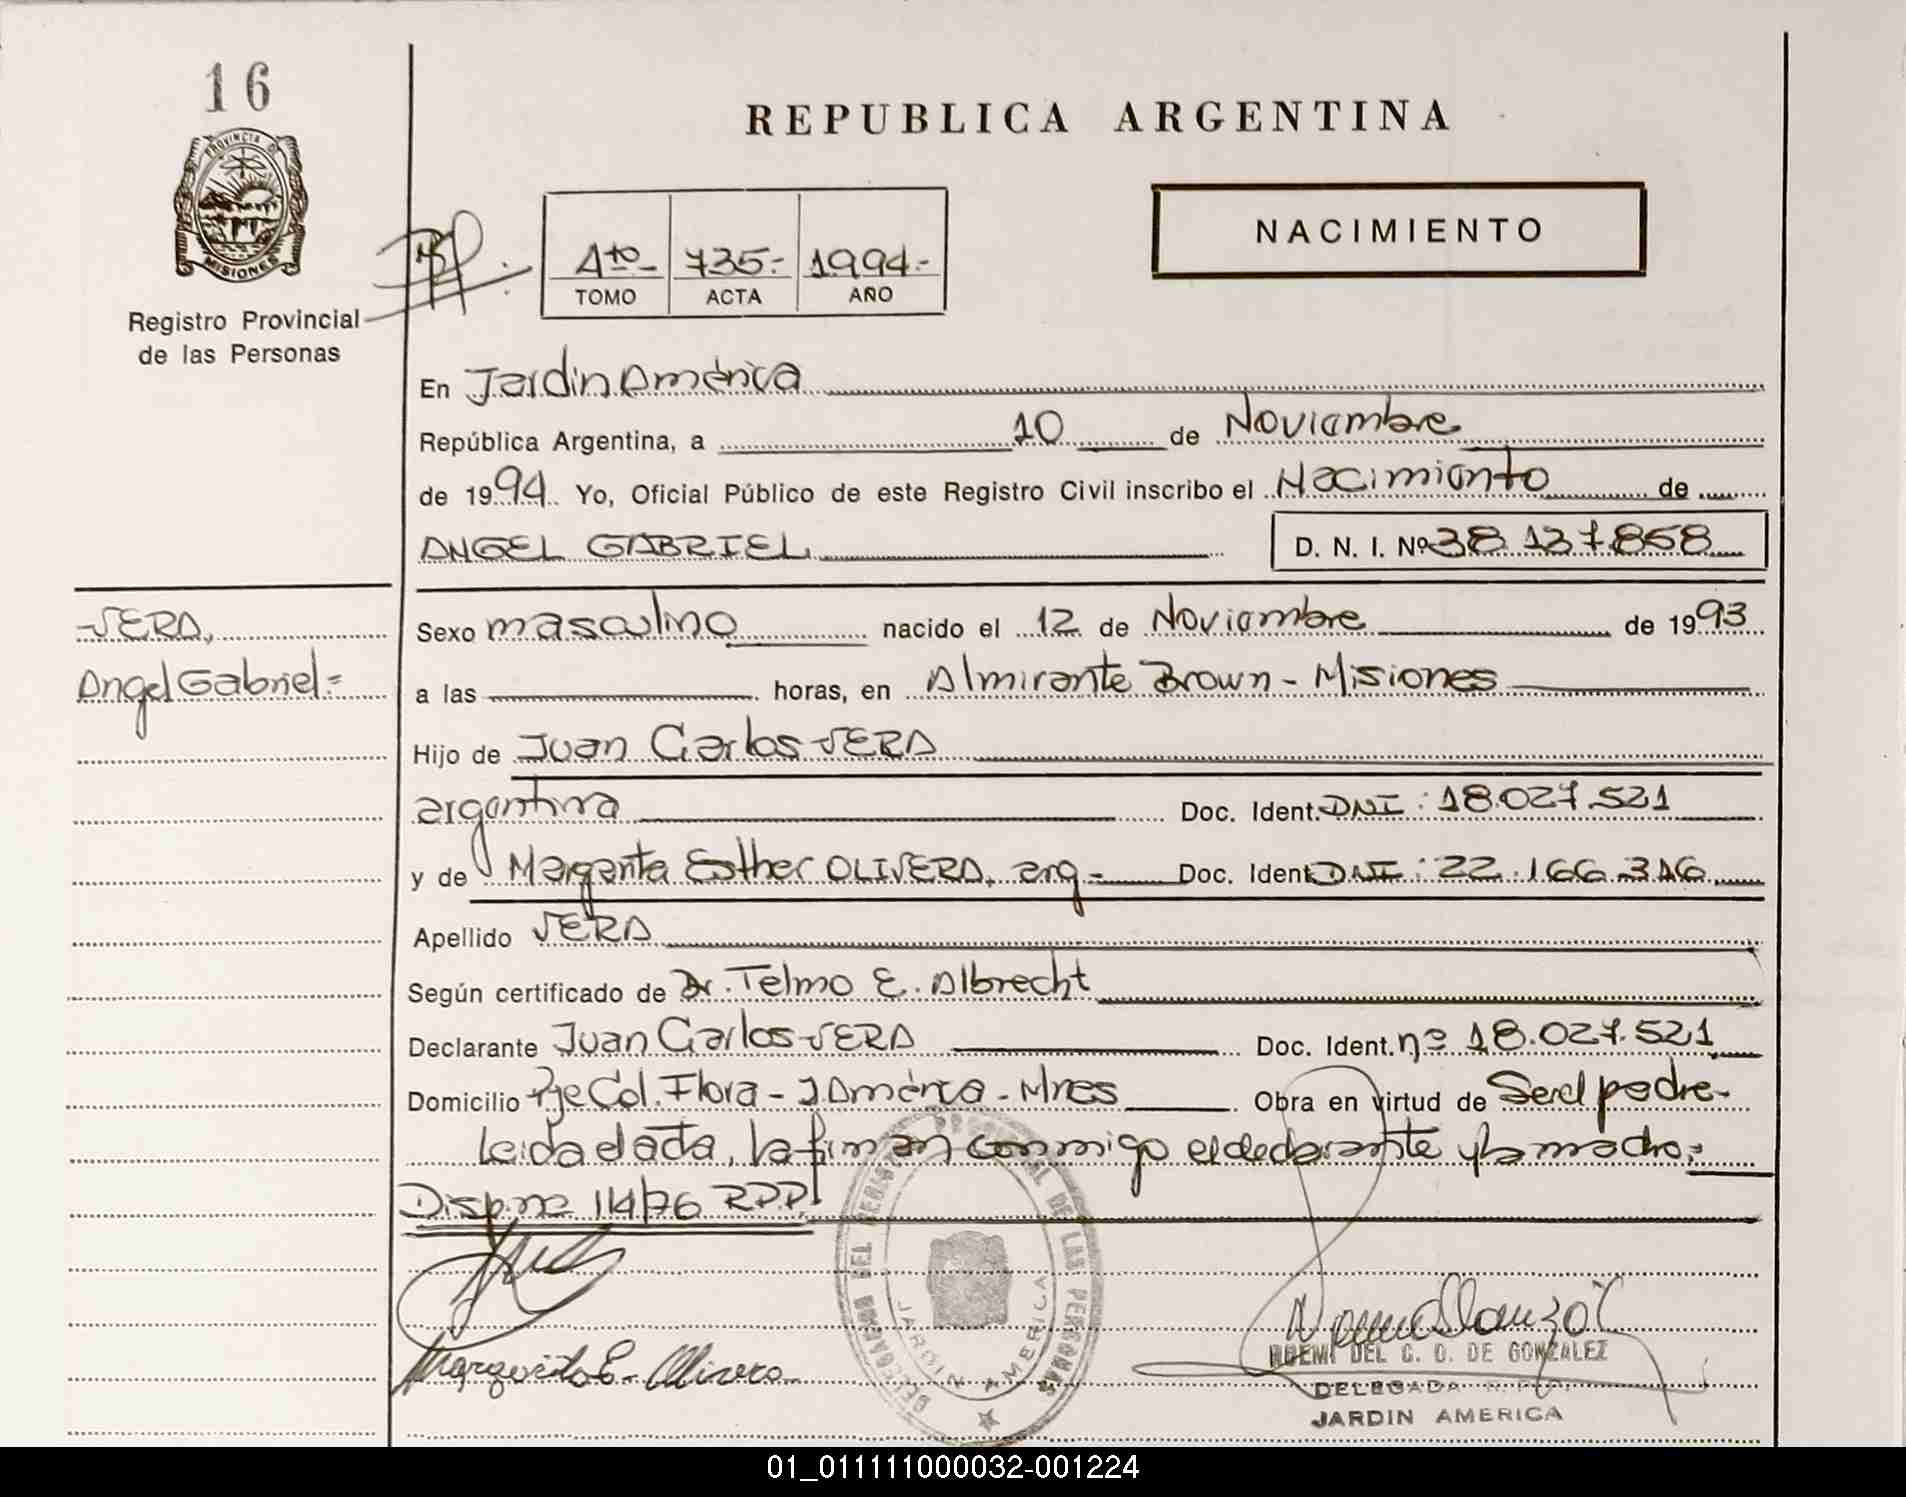 16
PROVINCIA DE
MISIONES
Registro Provincial
de las Personas
REPUBLICA ARGENTINA
NACIMIENTO
4to 735.- 1994.-
TOMO ACTA AÑO
En Jardín América
República Argentina, a 10 de Noviembre
de 1994. Yo, Oficial Público de este Registro Civil inscribo el Nacimiento de
ANGEL GABRIEL D. N. I. Nº 38.137.858
VERA,
Angel Gabriel=
Sexo masculino nacido el 12 de Noviembre de 1993
a las horas, en Almirante Brown - Misiones
Hijo de Juan Carlos VERA
argentina Doc. Ident. DNI: 18.027.521
y de Margarita Esther OLIVERA, arg.- Doc. Ident DNI: 22.166.316
Apellido VERA
Según certificado de Dr. Telmo E. Albrecht
Declarante Juan Carlos VERA Doc. Ident. nº 18.027.521
Domicilio Pje Col. Flora - J. América - Mnes Obra en virtud de Ser el padre-
Leída el acta, la firman conmigo el declarante y la madre.=
Disp. nº 114/76 RPP.
Margarita E. Olivera
DELEGADO DEL REGISTRO PROVINCIAL DE LAS PERSONAS
JARDIN AMERICA
NOEMI DEL C. O. DE GONZALEZ
DELEGADA R.P.P.
JARDIN AMERICA
01_011111000032-001224